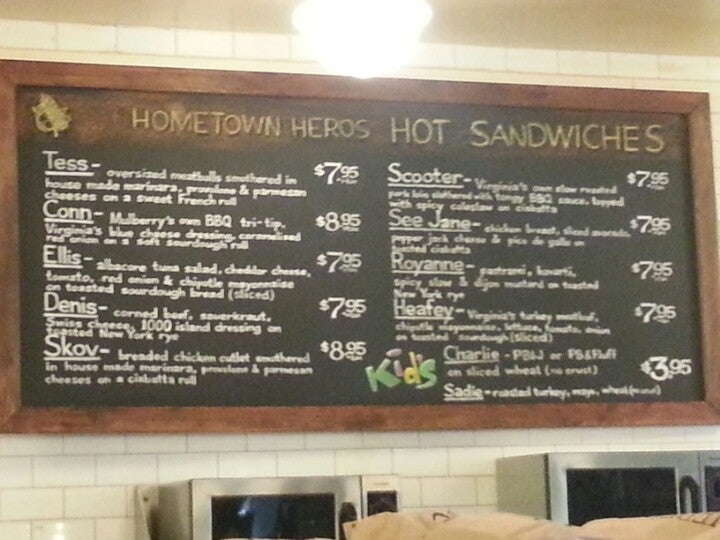 HOMETOWN HEROS HOT SANDWICHES
Tess - oversized meatballs smothered in
house made marinara, provolone & parmesan
cheeses on a sweet French roll
$7.95
Conn - Mulberry's own BBQ tri-tip,
Virginia's blue cheese dressing, caramelized
red onion on a soft sourdough roll
$8.95
Ellis - albacore tuna salad, cheddar cheese,
tomato, red onion & chipotle mayonnaise
on toasted sourdough bread (sliced)
$7.95
Denis - corned beef, sauerkraut,
Swiss cheese, 1000 island dressing on
toasted New York rye
$7.95
Skov - breaded chicken cutlet smothered
in house made marinara, provolone & parmesan
cheeses on a ciabatta roll
$8.95
Scooter - Virginia's own slow roasted
pork loin covered with tangy BBQ sauce, topped
with spicy coleslaw on ciabatta
$7.95
See Jane - chicken breast, sliced avocado,
pepper jack cheese & pico de gallo on
ciabatta
$7.95
Royanne - pastrami, havarti,
spicy slaw & dijon mustard on toasted
New York rye
$7.95
Heafey - Virginia's turkey meatloaf,
chipotle mayonnaise, lettuce, tomato, onion
on toasted sourdough (sliced)
$7.95
Kid's
Charlie - PB&J or PB&Fluff
on sliced wheat (no crust)
$3.95
Sadie - roasted turkey, mayo, wheat (no crust)